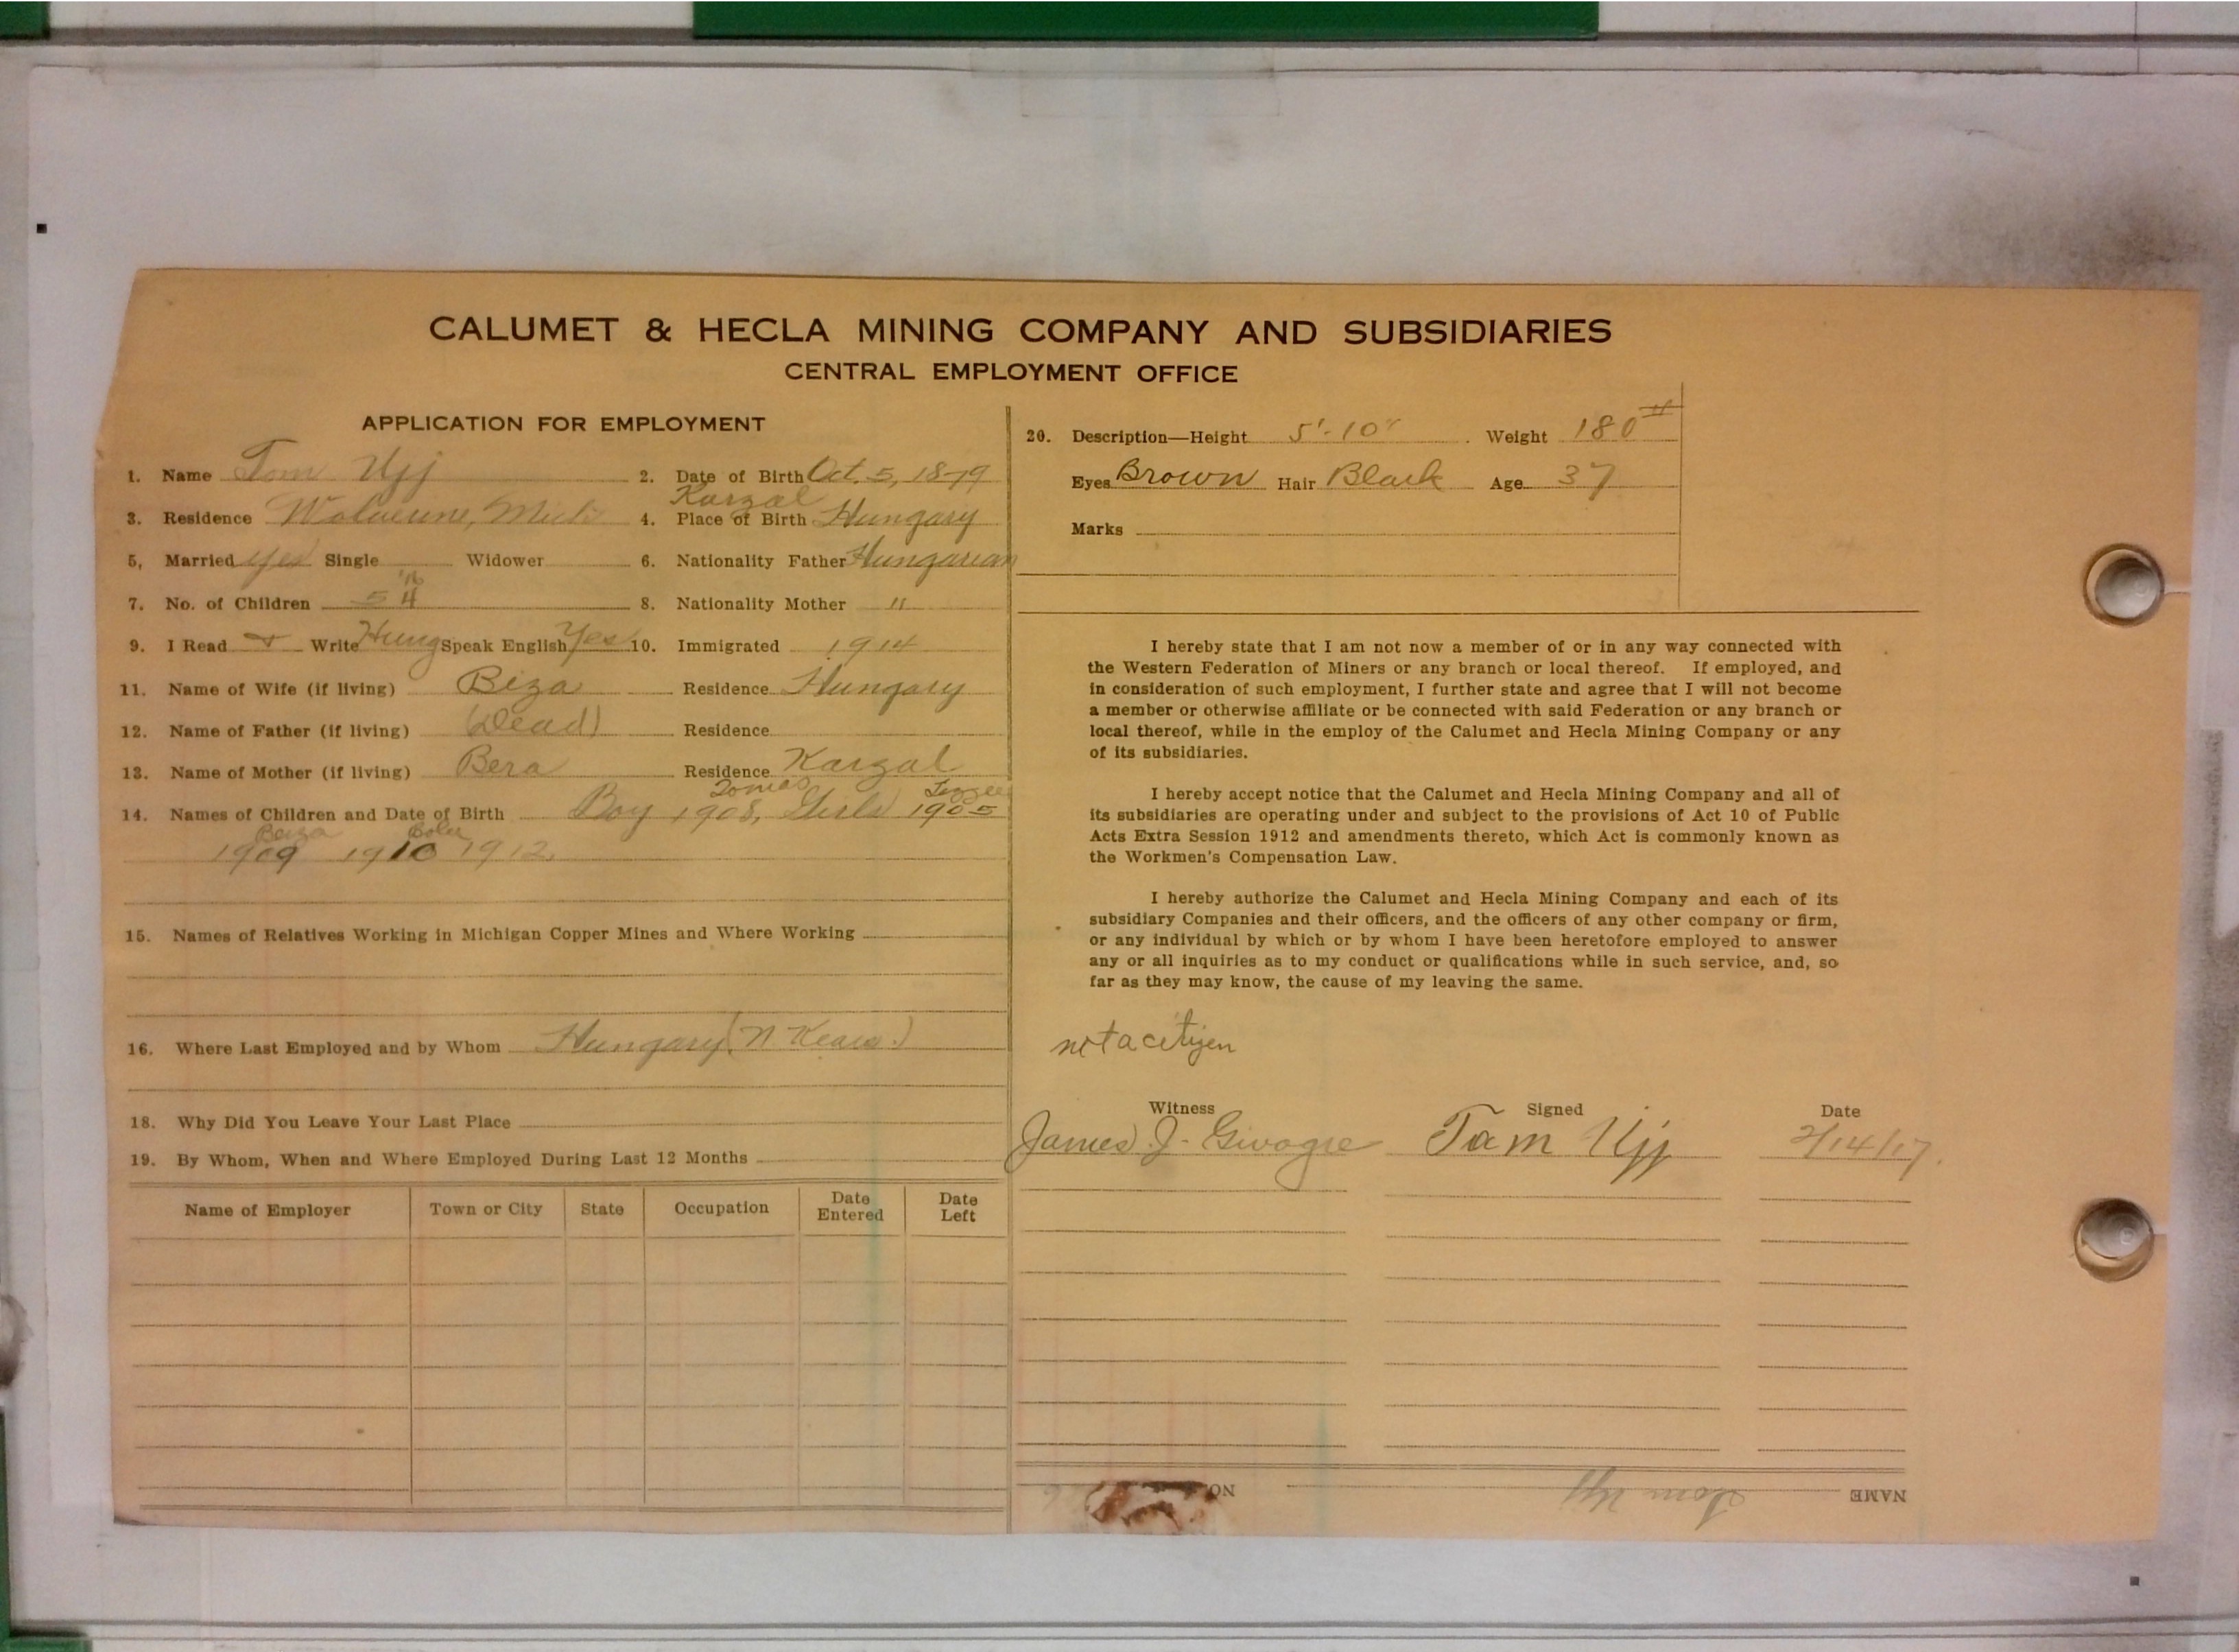 CALUMET & HECLA MINING COMPANY AND SUBSIDIARIES
CENTRAL EMPLOYMENT OFFICE
APPLICATION FOR EMPLOYMENT
1. Name Tom Ujj 2. Date of Birth Oct. 5, 1879
Karzal
3. Residence Wolverine, Mich 4. Place of Birth Hungary
5, Married yes Single Widower 6. Nationality Father Hungarian
7. No. of Children 5 4 8. Nationality Mother "
9. I Read & Write Hung Speak English Yes 10. Immigrated 1914
11. Name of Wife (if living) Biza Residence Hungary
12. Name of Father (if living) (Dead) Residence
13. Name of Mother (if living) Bera Residence Karzal
Tomas
14. Names of Children and Date of Birth Boy 1908, Girls 1905
1909 1910 1912.
15. Names of Relatives Working in Michigan Copper Mines and Where Working
16. Where Last Employed and by Whom Hungary (N. Kears.)
18. Why Did You Leave Your Last Place
19. By Whom, When and Where Employed During Last 12 Months
Name of Employer Town or City State Occupation Date Entered Date Left
20. Description—Height 5'-10" Weight 180 #
Eyes Brown Hair Black Age 37
Marks
I hereby state that I am not now a member of or in any way connected with
the Western Federation of Miners or any branch or local thereof. If employed, and
in consideration of such employment, I further state and agree that I will not become
a member or otherwise affiliate or be connected with said Federation or any branch or
local thereof, while in the employ of the Calumet and Hecla Mining Company or any
of its subsidiaries.
I hereby accept notice that the Calumet and Hecla Mining Company and all of
its subsidiaries are operating under and subject to the provisions of Act 10 of Public
Acts Extra Session 1912 and amendments thereto, which Act is commonly known as
the Workmen's Compensation Law.
I hereby authorize the Calumet and Hecla Mining Company and each of its
subsidiary Companies and their officers, and the officers of any other company or firm,
or any individual by which or by whom I have been heretofore employed to answer
any or all inquiries as to my conduct or qualifications while in such service, and, so
far as they may know, the cause of my leaving the same.
not a citizen
Witness Signed Date
James J. Tam Ujj 2/14/17.
NAME Tom Ujj NO.